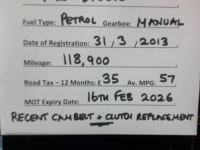 Fuel Type: PETROL Gearbox: MANUAL
Date of Registration: 31 / 3 / 2013
Mileage: 118,900
Road Tax – 12 Months: £ 35 Av. MPG: 57
MOT Expiry Date: 16TH FEB 2026
RECENT CAMBELT + CLUTCH REPLACEMENT